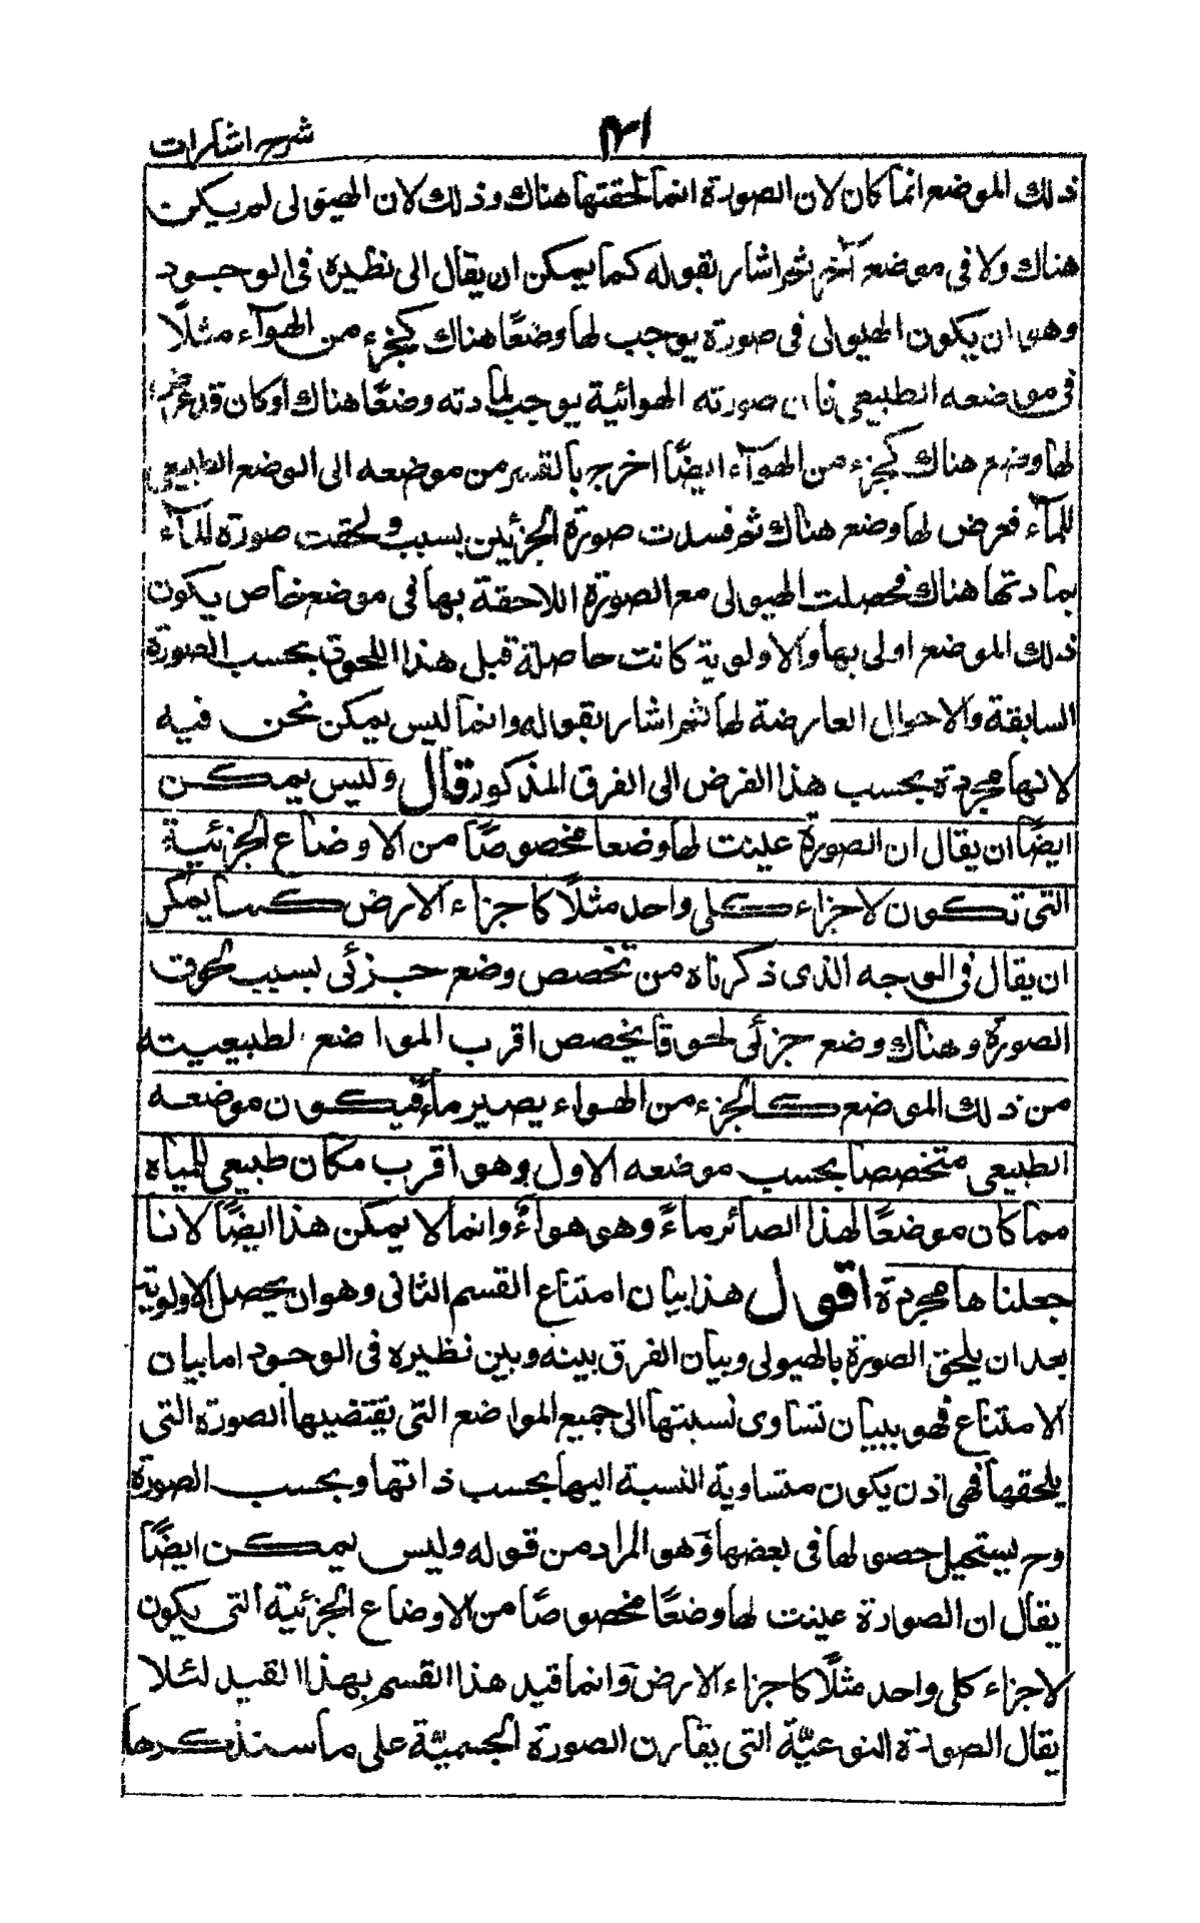 شرح اشارات
ذلك الموضع انما كان لان الصورة انما لحقتها هناك وذلك لان الهيولى لم يكن
هناك ولا فى موضع آخر ثم اشار بقوله كما يمكن ان يقال الى نظيره فى الوجود
وهو ان يكون الهيولى فى صورة يوجب لها وضعًا هناك كجزء من الهوآء مثلًا
فى موضعه الطبيعى فان صورته الهوائية يوجب لمادته وضعًا هناك او كان قد عرض
لها وضع هناك كجزء من الهوآء ايضًا اخرج بالقسر من موضعه الى الوضع الطبيعى
للمآء فعرض لها وضع هناك ثم فسدت صورة الجزئين بسبب ولحقت صورة المآء
بمادتها هناك فحصلت الهيولى مع الصورة اللاحقة بها فى موضع خاص يكون
ذلك الموضع اولى بها والاولوية كانت حاصلة قبل هذا اللحوق بحسب الصورة
السابقة والاحوال العارضة لها ثم اشار بقوله وانما ليس يمكن نحن فيه
لانها مجردة بحسب هذا الفرض الى الفرق المذكور قال وليس يمكن
ايضًا ان يقال ان الصورة عينت لها وضعا مخصوصًا من الاوضاع الجزئية
التى تكون لاجزاء كلى واحد مثلًا كاجزاء الارض كما يمكن
ان يقال فى الوجه الذى ذكرناه من تخصص وضع جزئى بسبب لحوق
الصورة وهناك وضع جزئى لحوقا يخصص اقرب المواضع لطبيعيته
من ذلك الموضع كالجزء من الهواء يصير ماء فيكون موضعه
الطبيعى متخصصا بحسب موضعه الاول وهو اقرب مكان طبيعى للمياه
مما كان موضعًا لهذا الصائر ماءً وهو هواءٌ وانما لا يمكن هذا ايضًا لانا
جعلناها مجردة اقول هذا بيان امتناع القسم الثانى وهو ان يحصل الاولوية
بعد ان يلحق الصورة بالهيولى وبيان الفرق بينه وبين نظيره فى الوجود اما بيان
الامتناع فهو ببيان تساوى نسبتها الى جميع المواضع التى يقتضيها الصورة التى
يلحقها فهى اذن يكون متساوية النسبة اليها بحسب ذاتها وبحسب الصورة
وح يستحيل حصولها فى بعضها وهو المراد من قوله وليس يمكن ايضًا
يقال ان الصوارة عينت لها وضعًا مخصوصًا من الاوضاع الجزئية التى يكون
لاجزاء كلى واحد مثلًا كاجزاء الارض وانما قيد هذا القسم بهذا القيد لئلا
يقال الصورة النوعيّة التى يقارن الصورة الجسميّة على ما سنذكرها